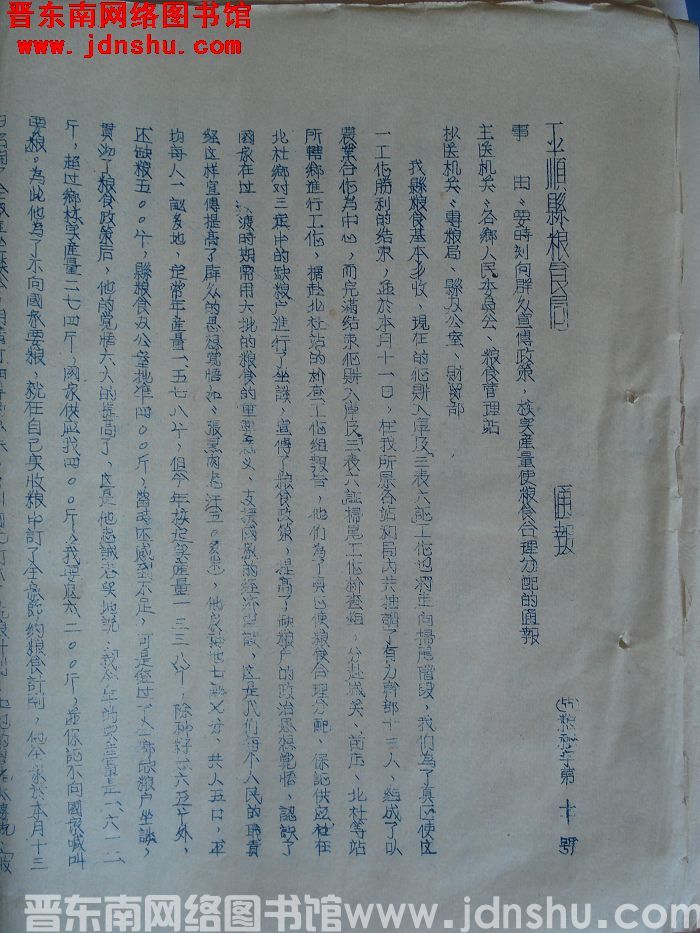 晋东南网络图书馆
www.jdnshu.com
平順縣粮食局 通報
第十号
事由：要時刻向群众宣傳政策，核实產量使粮食合理分配的通報
主送机关：各鄉人民委員会、粮食管理站
抄送机关：專粮局、縣办公室、財貿部
我縣粮食基本多收、現在的化財入庫及三表六証工化也將走向掃尾階段，我們為了真正使这
一工化勝利的結束，並於本月十一日，在我所屬各站和局內共抽調了有力幹部十三人，組成了以
農業合化為中心，而完滿結束化財入庫及三表六証掃尾工化檢查組，分赴城关、苗庄、北杜等站
所轄鄉進行工化，據赴北杜站的檢查工化組報告，他們為了真正使粮食合理分配、保証供应社在
北杜鄉对三定中的缺粮户進行了坐談，宣傳了粮食政策，提高了缺粮户的政治思想覚悟，認識了
國家在过渡時期需用大批的粮食的重要意义，支援國家的經济建設，这是我们每个人民的職責
經这样宣傳提高了群众的思想覚悟如：張黑肉老汪，他家共地七畝 分，共人五口，平
均每人一畝多地，定常年產量一、五七八斤，但今年核定实產量一三三八斤，除种籽一六五斤外，
还缺粮五〇〇斤，縣粮食办公室批准四〇〇斤，當時还感到不足，可是經过了 缺粮户坐談，
貫沏了粮食政策后，他的覚悟大大的提高了，这是他忠誠老实地說：我今年的实產量是一、六一二
斤，超过鄉核实產量二七四斤，國家供应我四〇〇斤，我要退六二〇〇斤，並保証不向國家喊叫
要粮。為此他為了不向國家要粮，就在自己实收粮中訂了全家節約粮食計劃，他全家於本月十三
晋东南网络图书馆 www.jdnshu.com